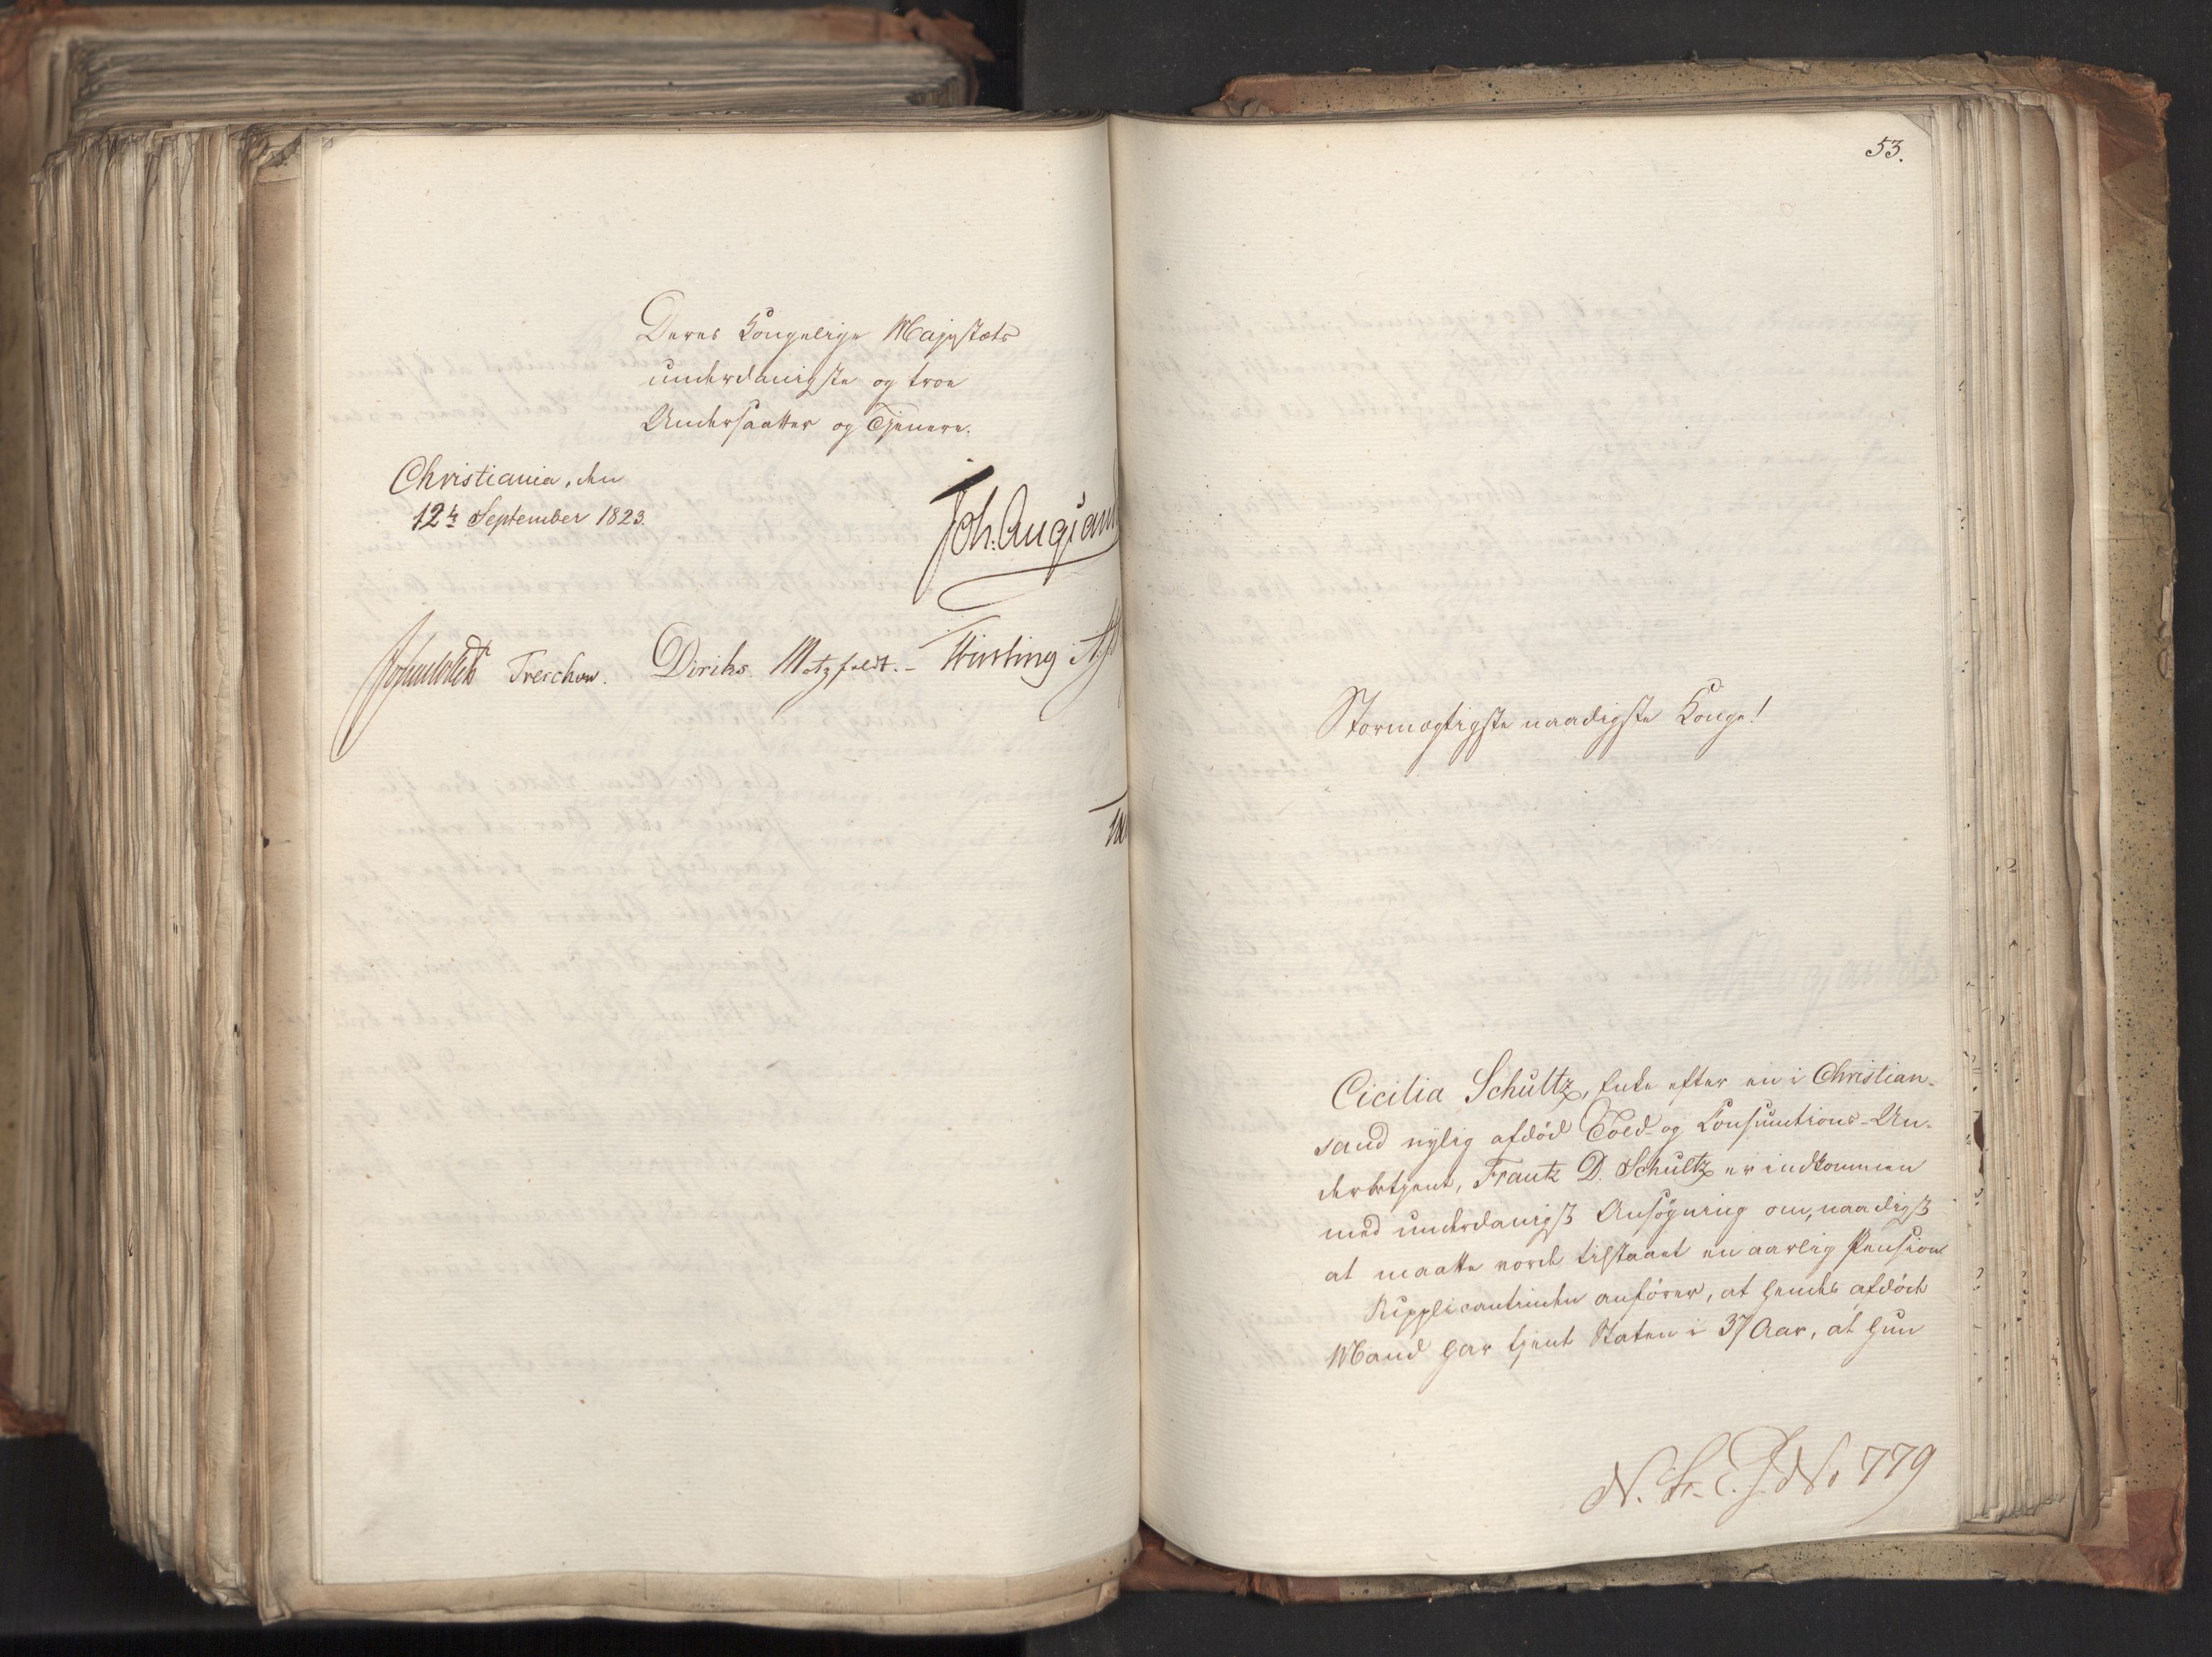 Deres Kongelige Majestæts
underdanigste og troe
Undersaatter og Tjenere.
Christiania, den
12te September 1823.
Treschow. Diriks. Motzfeldt.
53.
Stormægtigste naadigste Konge!
Cicilia Schultz, Enke efter en i Christian-
sand nylig afdød Told- og Consumtions-Un-
derbetjent, Frantz D. Schultz er indkommen
med underdanigst Ansøgning om, naadigst
at maatte vorde tilstaaet en aarlig Pension
Supplicantinden anfører, at hendes afdøde
Mand har tjent Staten i 37 Aar, at hun
No 779